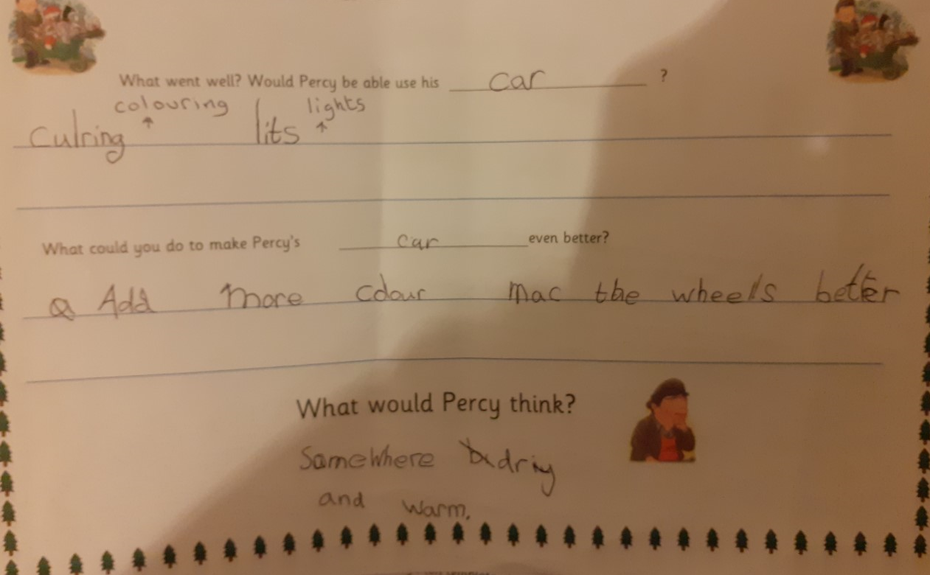 What went well? Would Percy be able use his car ?
colouring lights
culring lits
What could you do to make Percy's car even better?
a Add more colour mac the wheels better
What would Percy think?
Somewhere driy
and warm.